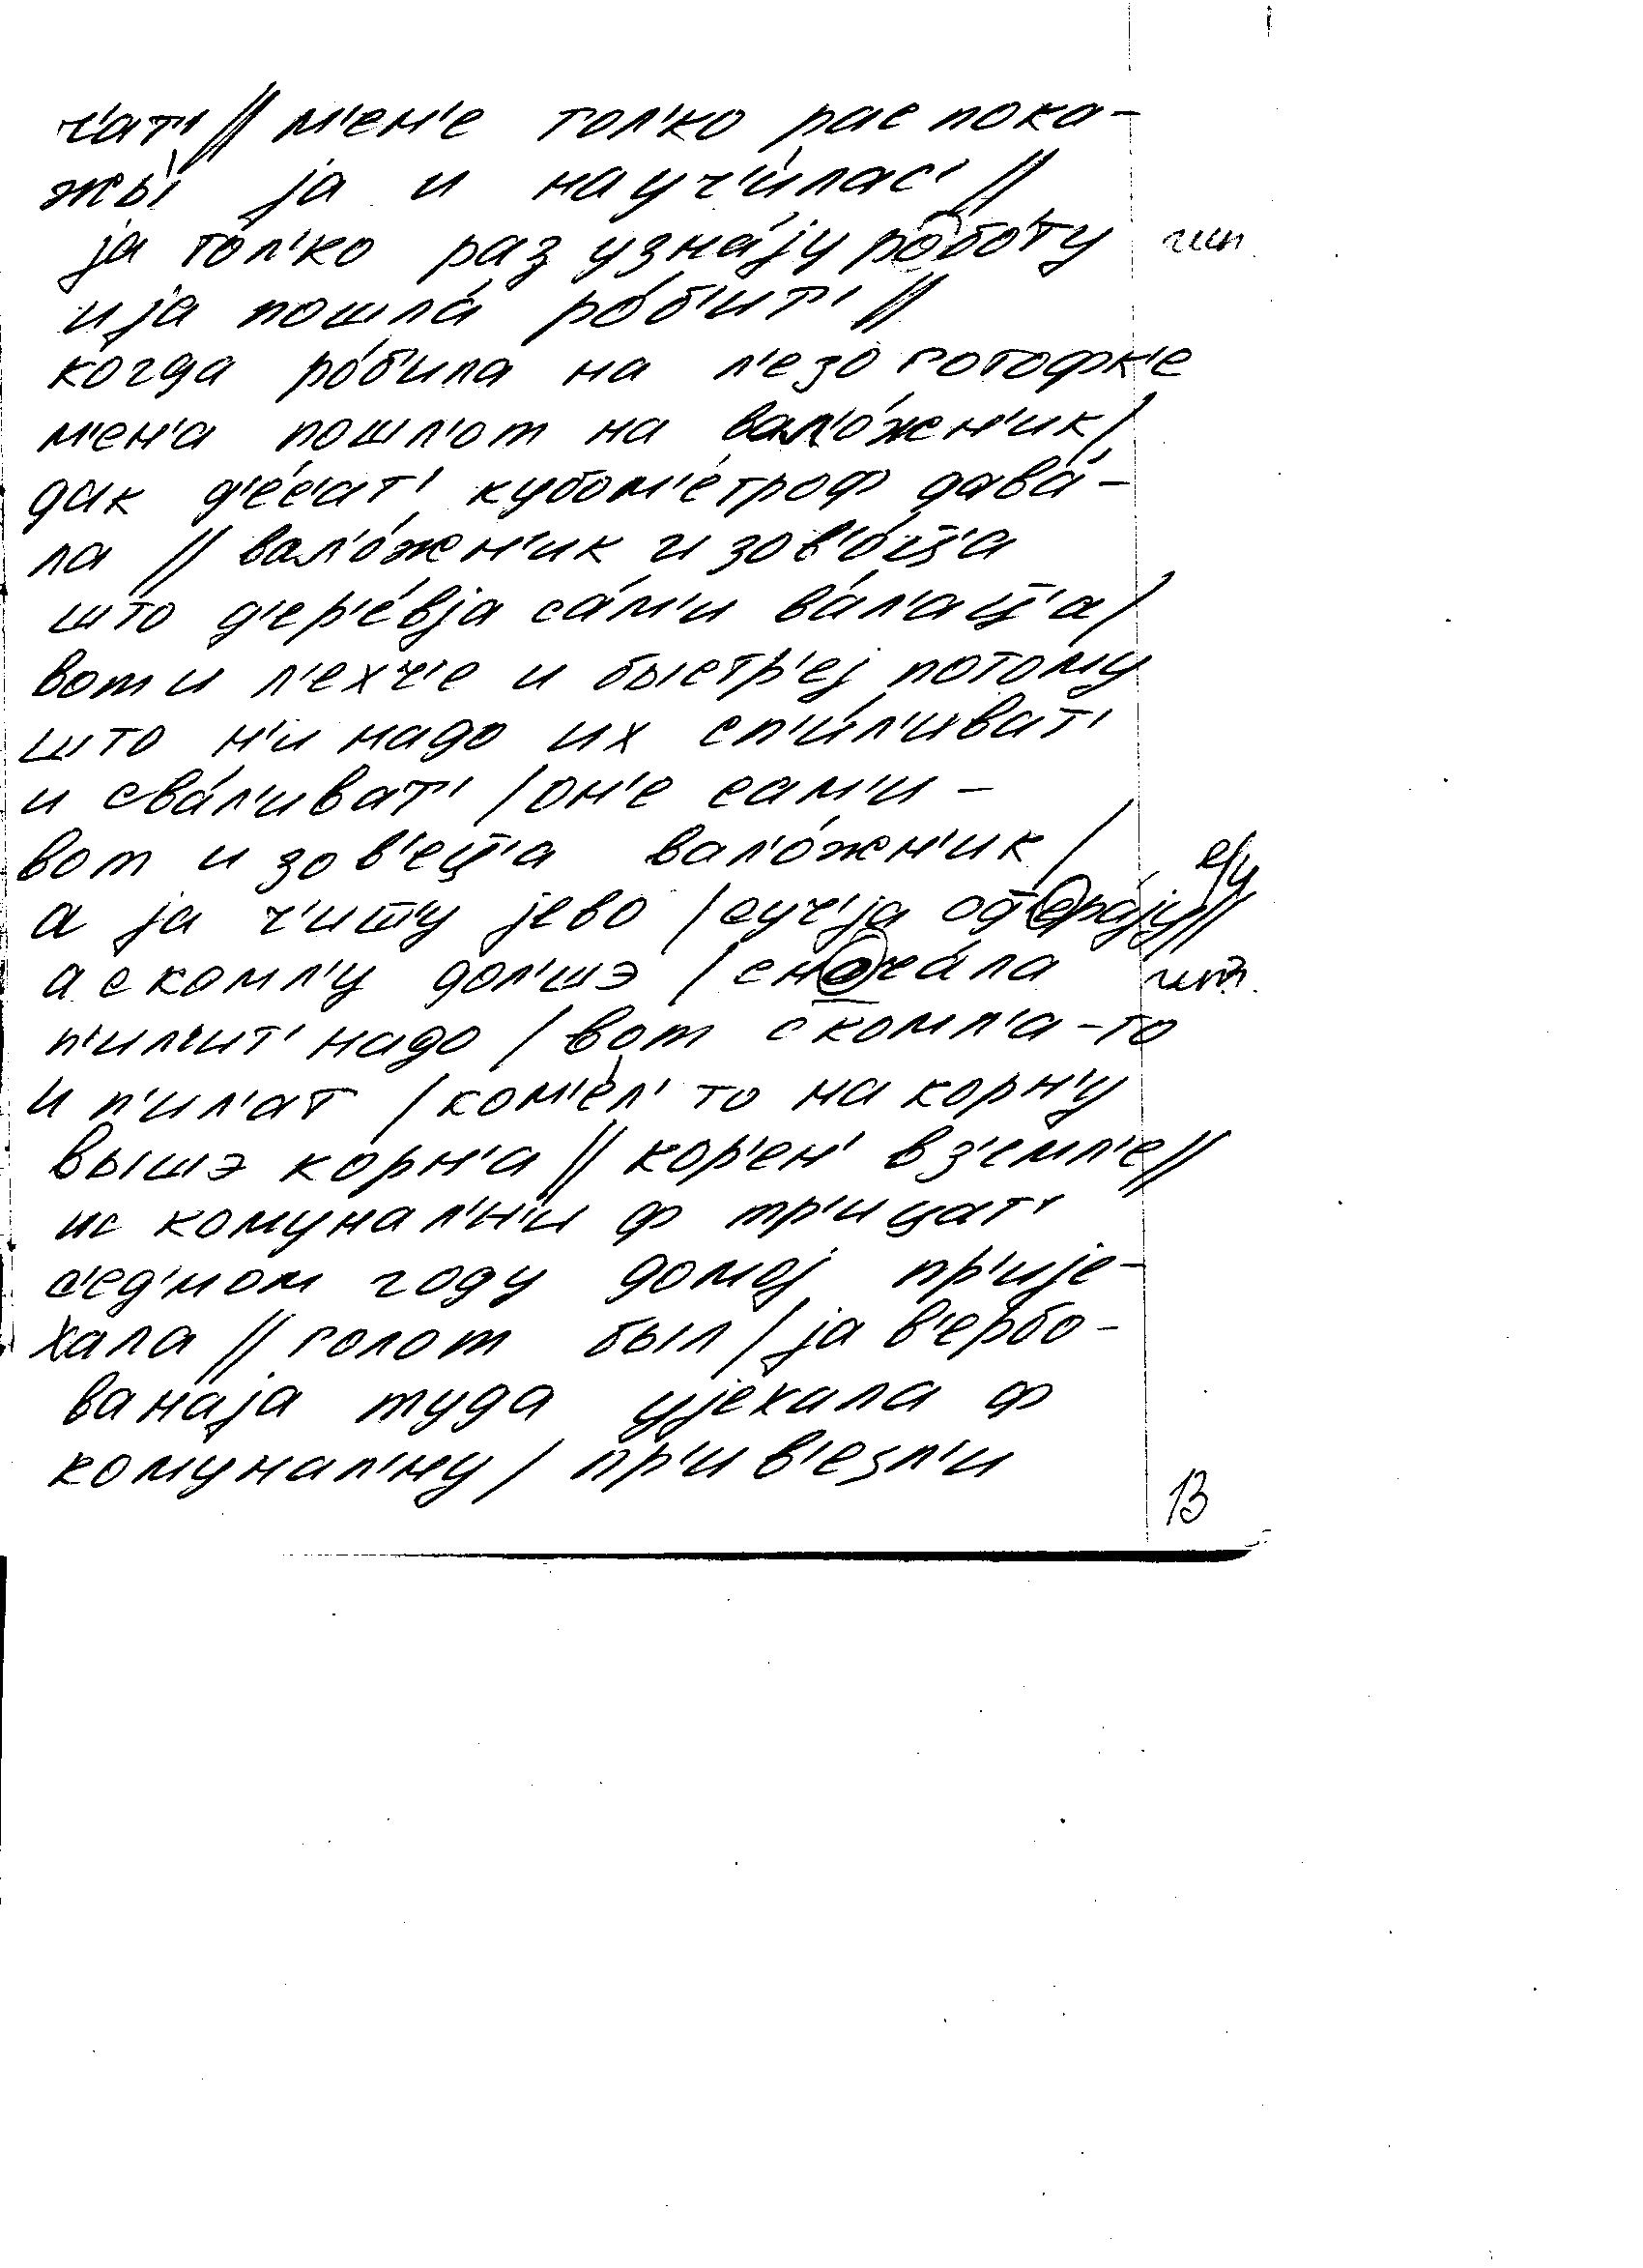 ч'ат' // м'ен'е тол'ко рас пока-
жы́ ја и науч'и́лас' //
ја то́л'ко раз узна́јy ро́боту гип.
и ја пошла́ ро́б'ит' //
когда ро́б'ила на л'езозготофк'е
м'ен'а пошл'от на вал'о́жн'ик /
дак д'е́с'ат' кубом'е́троф дава́-
ла // вал'о́жн'ик и зов'о́ц̄'а
што д'ер'е́вја са́м'и ва́л'ац̄'а /
вот и л'ехч'е и быстр'еј потому
што н'и надо их сп'и́л'иват'
и сва́л'иват' / он'е сам'и -
вот и зов'ец̄'а вал'о́жн'ик / е/и
а ја ч'ишу јево / суч'ја од'ера́ју //
а с комл'у дол'шэ / сноч'а́ла гип.
п'ил'ит' надо / вот с комл'а-то
и п'ил'ат / ком'е́л' то на корн'у
вышэ корн'а // кор'ен' в з'емл'е //
ис комунал'н'и ф тр'ицат'
с'ед'мом году домој пр'ије-
хала // голот был / ја в'ербо-
ванаја туда ујехала ф
комунал'ну / пр'ив'езл'и
13